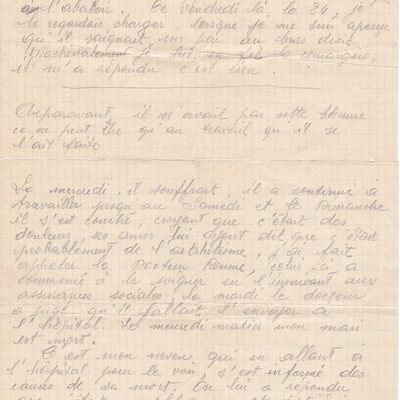 à l'abattoir. Ce vendredi là, le 24, je
le regardais charger lorsque je me suis aperçu
qu'il saignait un peu au bras droit.
Machinalement je lui en fis la remarque,
il m'a répondu c'est rien.
Auparavant, il n'avait pas cette blessure
ce ne peut être qu'au travail qu'il se
l'ait faite
Le mercredi, il souffrait, il a continué à
travailler jusqu'au Samedi et le Dimanche
il s'est couché, croyant que c'était des
douleurs, ses amis lui ayant dit que c'était
probablement de l'arthritisme, j'ai fait
appeler le Docteur Roume, celui là a
commencé à le soigner en l'inscrivant aux
assurances sociales, le mardi le docteur
a jugé qu'il fallait l'envoyer à
l'hôpital. Le mercredi matin mon mari
est mort.
C'est mon neveu, qui en allant à
l'hôpital pour le voir, s'est informé des
causes de sa mort. On lui a répondu